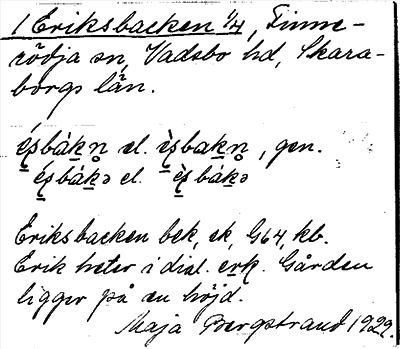 1 Eriksbacken 1/4, Finne-
rödja sn, Vadsbo hd, Skara-
borgs län.
ésbàkn̥ el. èsbakn̥, gen.
ésbàkə el. èsbákə
Eriksbacken bek, ek, G64, kb.
Erik heter i dial. erk. Gården
ligger på en höjd.
Maja Bergstrand 1922.